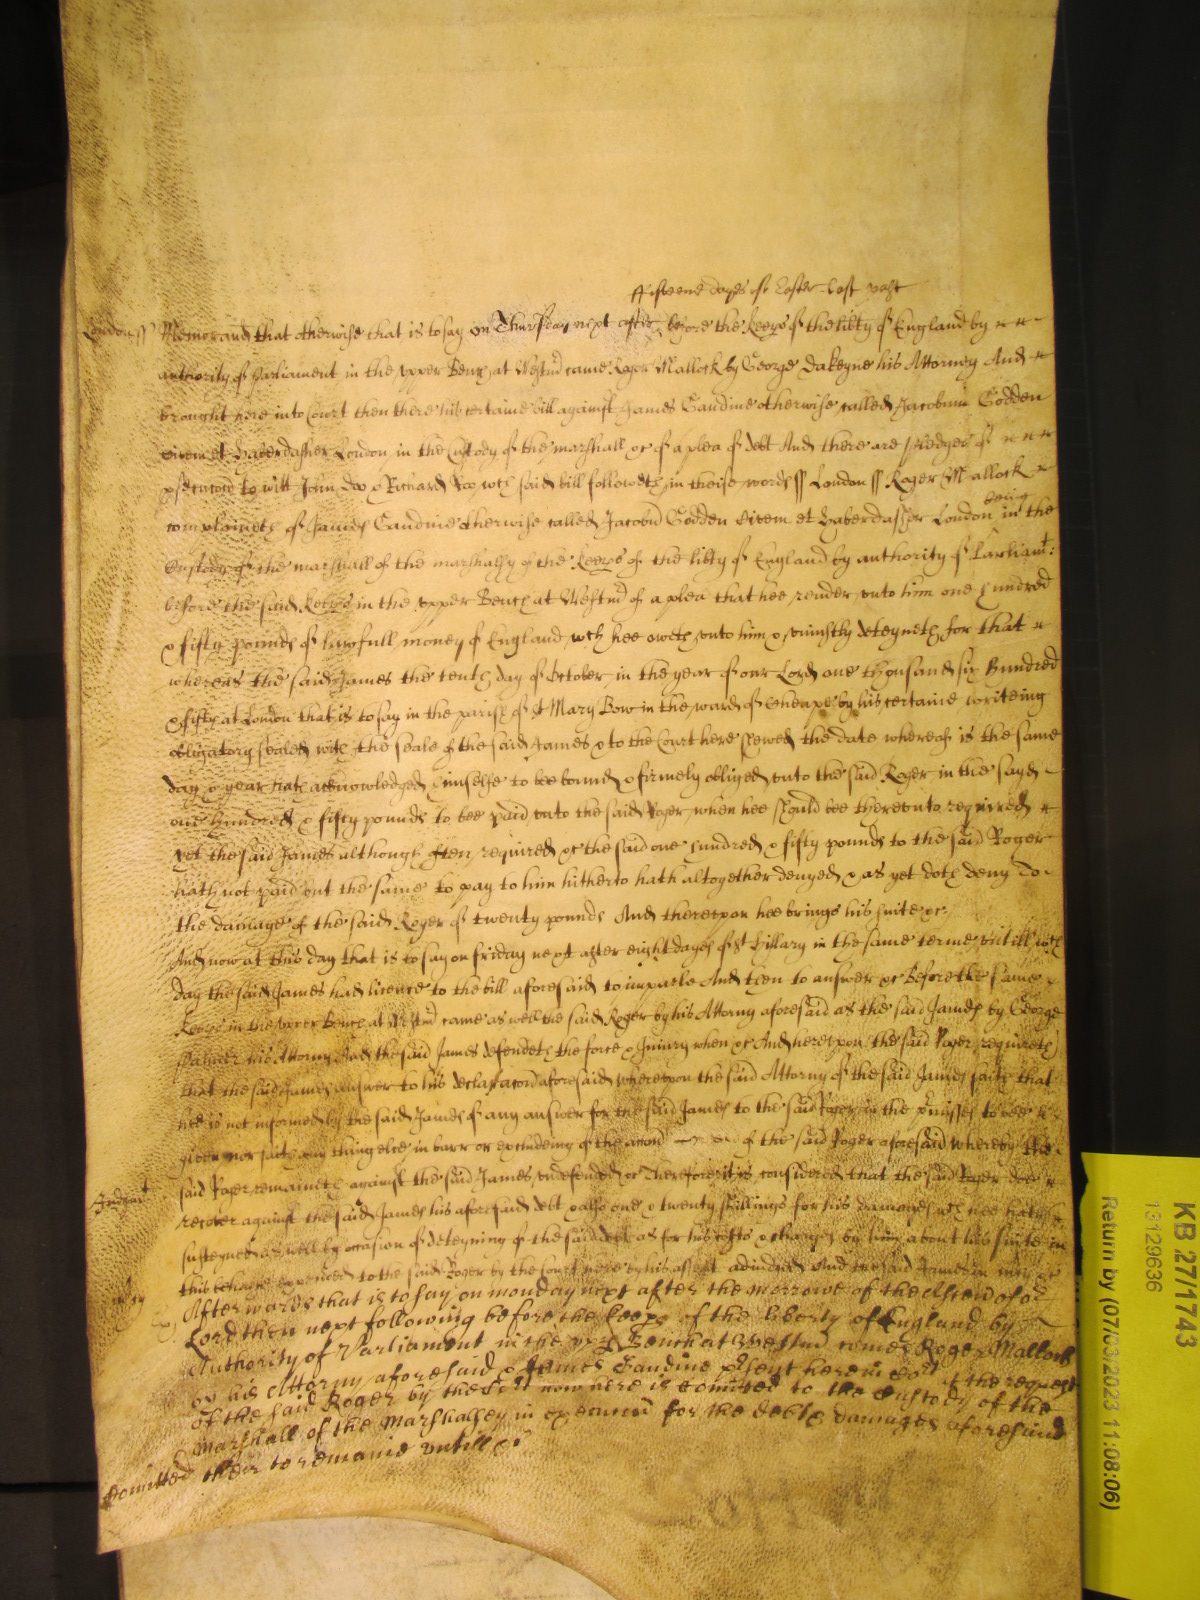 ffifteene dayes of Easter last past
London ss Memorand that otherwise that is to say on Thursday next after before the Keeps of the libty of England by
authority of Parliament in the upper Bench at Westmr came Roger Mallock by George Dakeyne his Attorney And
brought here into Court then there his certaine bill against James Gaudine otherwise called Jacobum Godden
Civem et Haberdasher London in the Custody of the marshall &c of a plea of debt And there are pledges of
psecucon to witt John Doo & Richard Roo wch said bill followeth in theise words ss London ss Roger Mallock
complaineth of James Gaudine otherwise called Jacobu Godden Civem et Haberdasher London being in the
Custody of the marshall of the marshalsy of the Keeps of the libty of England by authority of Parliamt:
before the said Keeps in the upper Bench at Westmr of a plea that hee render unto him one hundred
& fifty pounds of lawfull money of England wch hee oweth unto him & uniustly deteyneth for that
whereas the said James the tenth day of October in the year of our Lord one thousand six hundred
& fifty at London that is to say in the parish of St Mary Bow in the ward of Cheape by his certaine writeing
obligatory sealed with the seale of the said James & to the Court here shewed the date whereof is the same
day & year hath acknowledged himselfe to bee bound & firmely obliged unto the said Roger in the sayd
one hundred & fifty pounds to bee paid unto the said Roger when hee should bee thereunto required
yet the said James although often required &c the said one hundred & fifty pounds to the said Roger
hath not paid but the same to pay to him hitherto hath altogether denyed & as yet doth deny to
the damage of the said Roger of twenty pounds And thereupon hee brings his suite &c
And now at this day that is to say on friday next after eight dayes of St Hillary in the same terme untill wch
day the said James had licence to the bill aforesaid to imparle And then to answer &c Before the same
Keeps in the upper Bench at Westmr came as well the said Roger by his Attorny aforesaid as the said James by George
his Attorny And the said James defendeth the force & Iniury when &c And hereupon the said Roger requireth
that the said James answer to his declaracon aforesaid whereupon the said Attorny of the said James saith that
hee is not informed by the said James of any answer for the said James to the said Roger in the pmisses to bee
given nor saith any thing else in barr or excludeing of the accon of the said Roger aforesaid whereby the
said Roger remaineth against the said James undefended &c Therefore it is considered that the said Roger doe
Judgmt recover against the said James his aforesaid debt & alsoe one & twenty shillings for his damages wch hee hath
susteyned as well by occasion of deteyning of the said debt as for his costs & charges by him about his suite in
this behalfe expended to the said Roger by the Court here by his assent adiudged And the said James in mcy &c
Afterwards that is to say on monday next after the morrowe of the Ascencon of or
Lord then next following before the keeps of the liberty of England by
Authority of Parliament in the uppr Bench at Westmr comes Roger Mallock
by his Attorny aforesaid & James Gaudine psent here in Cort at the request
of the said Roger by the Cort now here is comitted to the Custody of the
Marshall of the Marshalsey in execucon for the debt & damages aforesaid
Comitted there to remaine untill &c
KB 27/1743
13129636
Return by (07/03/2023 11:08:06)